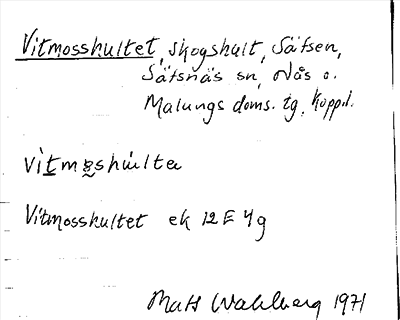 Vitmosskultet, skogskult, Säfsen,
Säfsnäs sn, Nås o.
Malungs doms. tg, Koppl.
Vitmosskultet ek 12E 4g
Mats Wahlberg 1971